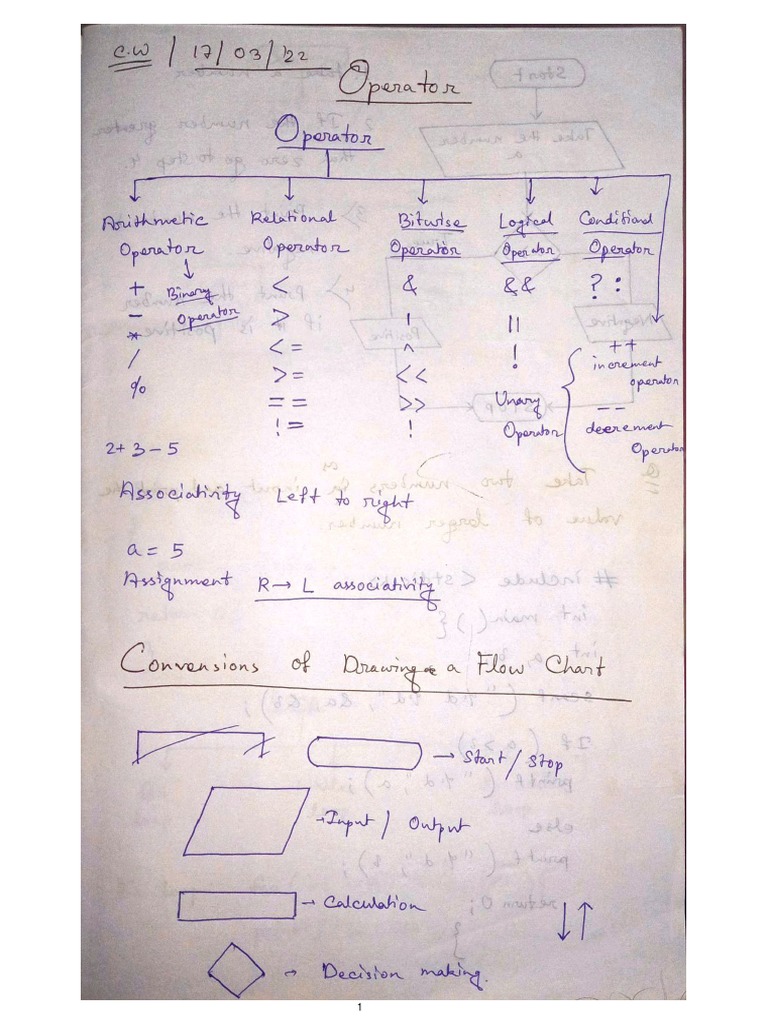 C.W / 17/03/22
Operator
Operator
Arithmetic Operator
Binary Operator
+
-
*
/
%
Relational Operator
<
>
<=
>=
==
!=
Bitwise Operator
&
!
^
<<
>>
!
Logical Operator
&&
||
!
Unary Operator
Conditional Operator
? :
++
increment operator
--
decrement Operator
2+3-5
Associativity Left to right
a = 5
Assignment R→L associativity
Convensions of Drawing a Flow Chart
→ Start/Stop
→ Input/Output
→ Calculation
→ Decision making.
1